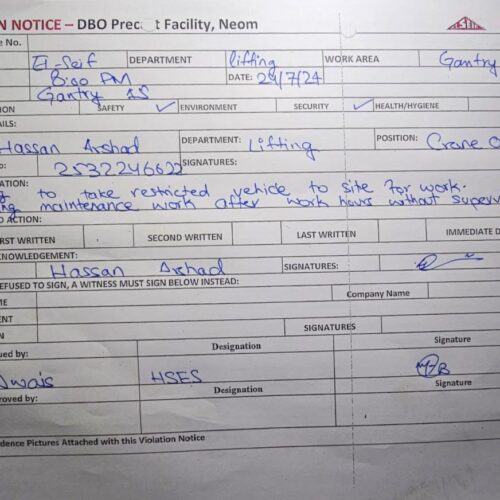 N NOTICE – DBO Precast Facility, Neom
e No.
El-Seif DEPARTMENT lifting WORK AREA Gantry
8:00 PM DATE: 24/7/24
Gantry 15
ION SAFETY ✓ ENVIRONMENT SECURITY ✓ HEALTH/HYGIENE
AILS:
Hassan Arshad DEPARTMENT: Lifting POSITION: Crane O
o: 2532246622 SIGNATURES:
ATION:
g to take restricted vehicle to site for work.
ing maintenance work after work hours without superv
D ACTION:
IRST WRITTEN SECOND WRITTEN LAST WRITTEN IMMEDIATE D
KNOWLEDGEMENT:
Hassan Arshad SIGNATURES:
EFUSED TO SIGN, A WITNESS MUST SIGN BELOW INSTEAD:
ME Company Name
ENT
N SIGNATURES
ued by: Designation Signature
Awais HSES
proved by: Designation Signature
dence Pictures Attached with this Violation Notice